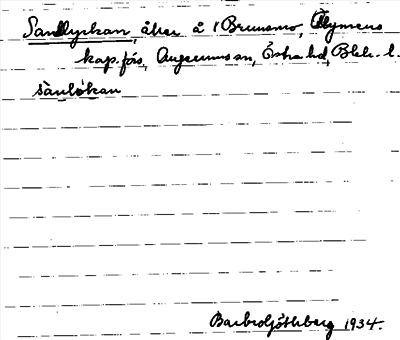 Sandlyckan, åker å 1 Brunsmo, Ellymens
kap.förs, Augerums sn, Östra hd, Blek. l.
sànlø̀kan
Barbro Söthberg 1934.